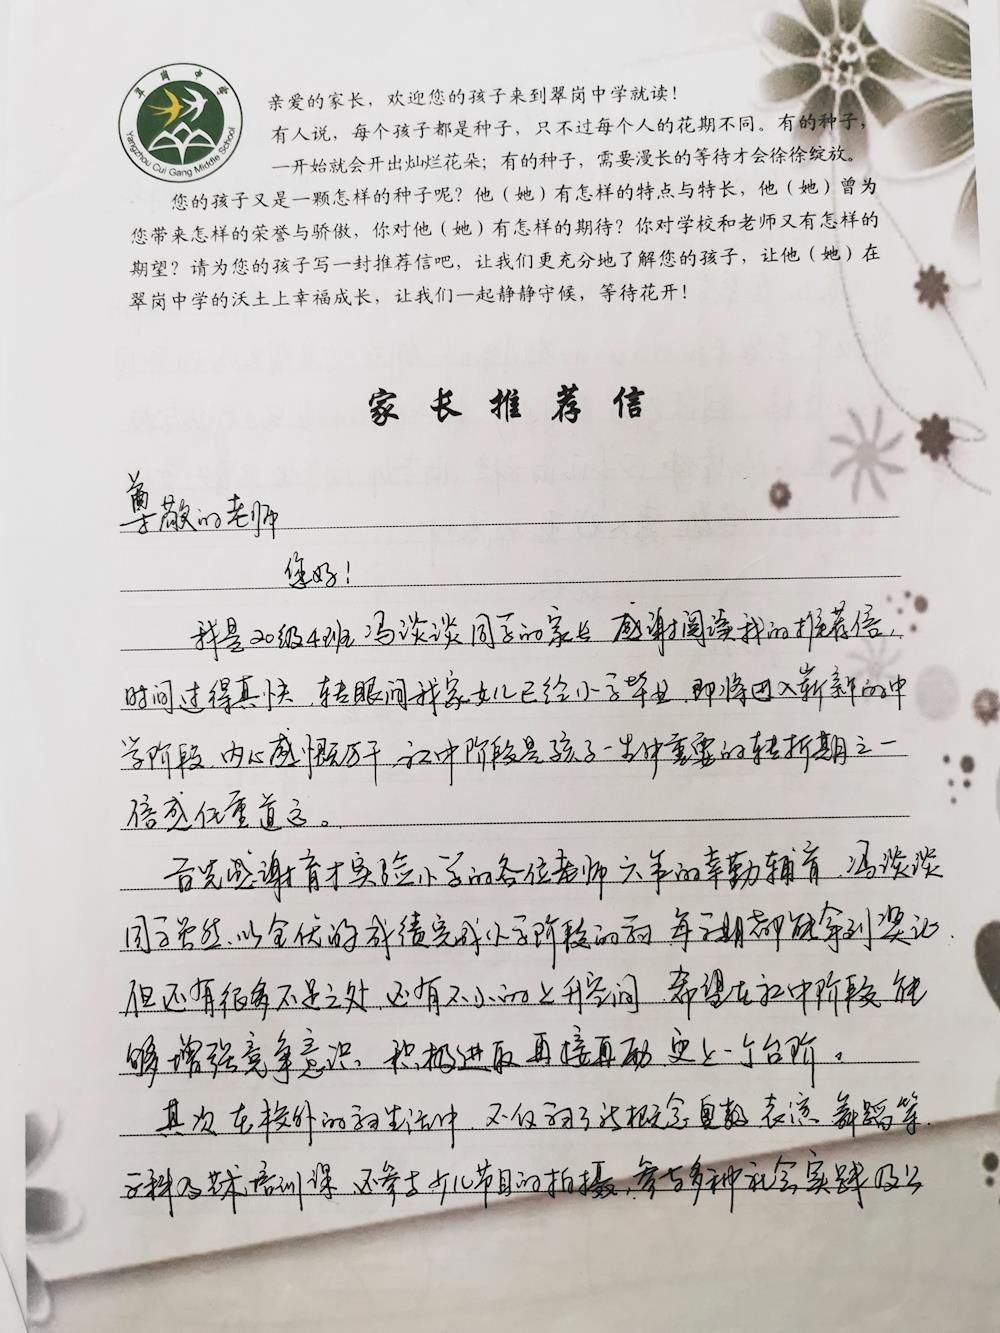 翠岗中学
Yangzhou Cui Gang Middle School
亲爱的家长，欢迎您的孩子来到翠岗中学就读！
有人说，每个孩子都是种子，只不过每个人的花期不同。有的种子，
一开始就会开出灿烂花朵；有的种子，需要漫长的等待才会徐徐绽放。
您的孩子又是一颗怎样的种子呢？他（她）有怎样的特点与特长，他（她）曾为
您带来怎样的荣誉与骄傲，你对他（她）有怎样的期待？你对学校和老师又有怎样的
期望？请为您的孩子写一封推荐信吧，让我们更充分地了解您的孩子，让他（她）在
翠岗中学的沃土上幸福成长，让我们一起静静守候，等待花开！
家长推荐信
尊敬的老师
您好！
我是20级4班冯谈谈同学的家长 感谢阅读我的推荐信，
时间过得真快，转眼间我家女儿已经小学毕业，即将进入崭新的中
学阶段，内心感慨万千，初中阶段是孩子一生中重要的转折期之一
倍感任重道远。
首先感谢育才实验小学的各位老师六年的辛勤辅育，冯谈谈
同学虽然以全优的成绩完成小学阶段的学习 每学期都能拿到奖记，
但还有很多不足之处，还有不小的上升空间 希望在初中阶段能
够增强竞争意识，积极进取 再接再励，更上一个台阶。
其次在校外的 生活中，不仅 了新概念 奥数 表演 舞蹈等，
学科及艺术培训课，还参与少儿节目的拍摄，参与多种社会实践及公